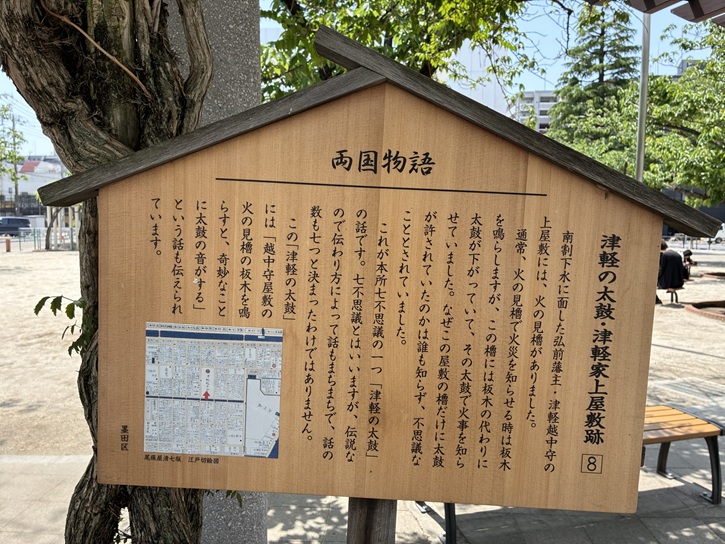 両国物語
津軽の太鼓・津軽家上屋敷跡 8
南割下水に面した弘前藩主・津軽越中守の
上屋敷には、火の見櫓がありました。
通常、火の見櫓で火災を知らせる時は板木
を鳴らしますが、この櫓には板木の代わりに
太鼓が下がっていて、その太鼓で火事を知ら
せていました。なぜこの屋敷の櫓だけに太鼓
が許されていたのかは誰も知らず、不思議な
こととされていました。
これが本所七不思議の一つ「津軽の太鼓」
の話です。七不思議とはいいますが、伝説な
ので伝わり方によって話もまちまちで、話の
数も七つと決まったわけではありません。
この「津軽の太鼓」
には「越中守屋敷の
火の見櫓の板木を鳴
らすと、奇妙なこと
に太鼓の音がする」
という話も伝えられ
ています。
尾張屋清七版 江戸切絵図
墨田区